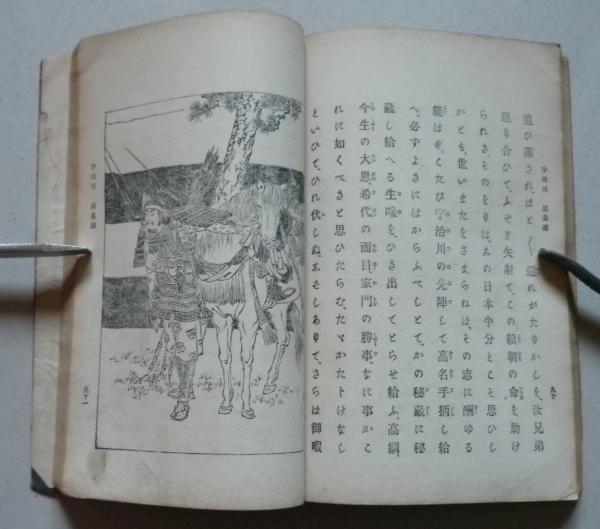 宇治川　屋島浦
九十
追ひ落され、ほと〳〵遁れがたりかしを、汝兄弟
返り合ひて、ふせぎ矢射て、この頼朝の命を助け
られき、そのをりは、あの日本半分とこそ思ひし
かとも、世いまたをさまらねは、その志に酬ゆる
能はす、こたび宇治川の先陣して高名手柄し給
へ、必すよきにはからふべしとて、かの秘蔵に秘
蔵し給へる生唼を、ひき出してとらせ給ふ、高綱、
今生の大恩希代の面目家門の勝事、なに事かこ
れに如くべきと思ひたらむ、たゞかたトけなし
といひて、ひれ伏しぬ、
しありて、さらは御暇
宇治川　屋島浦
九十一